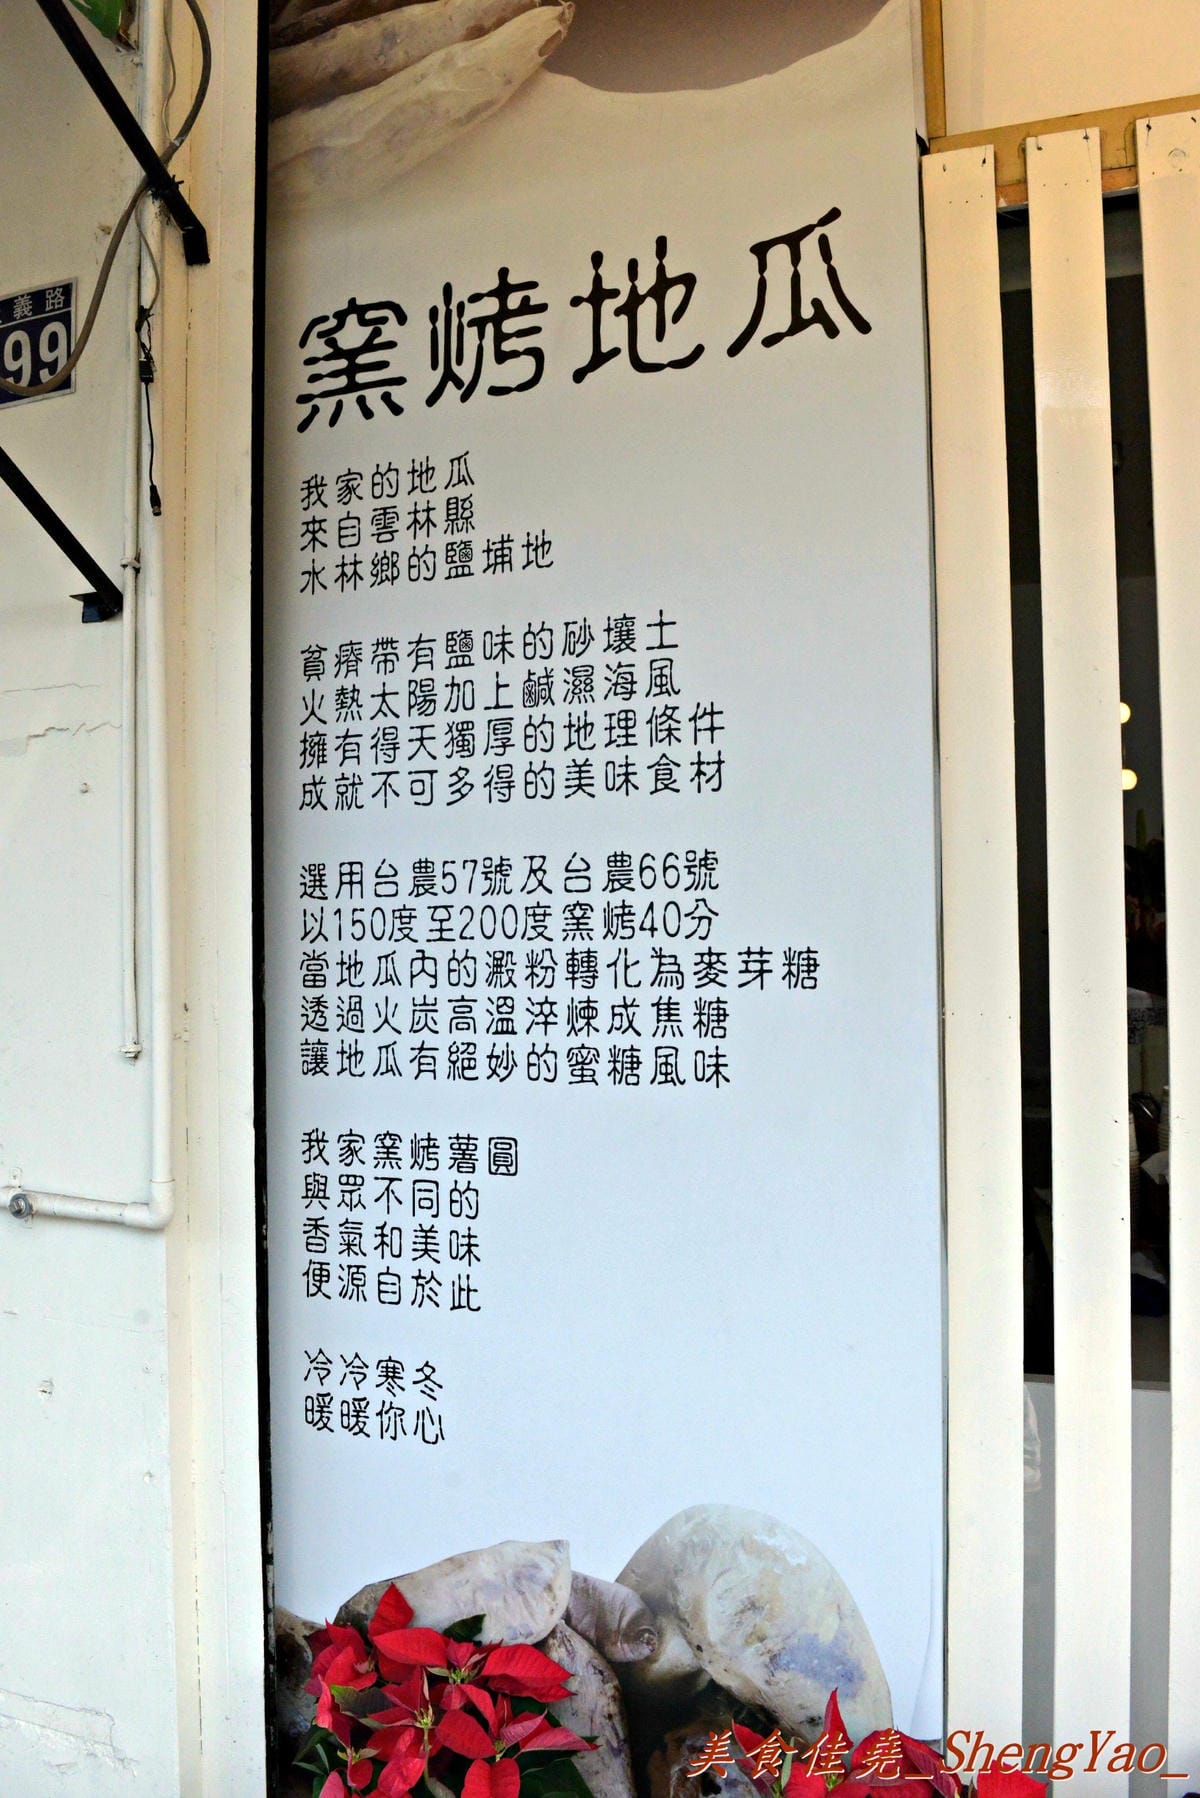 義路
99
窯烤地瓜
我家的地瓜
來自雲林縣
水林鄉的鹽埔地
貧瘠帶有鹽味的砂壤土
火熱太陽加上鹹濕海風
擁有得天獨厚的地理條件
成就不可多得的美味食材
選用台農57號及台農66號
以150度至200度窯烤40分
當地瓜內的澱粉轉化為麥芽糖
透過火炭高溫淬煉成焦糖
讓地瓜有絕妙的蜜糖風味
我家窯烤薯圓
與眾不同的
香氣和美味
便源自於此
冷冷寒冬
暖暖你心
美食佳堯_ShengYao_